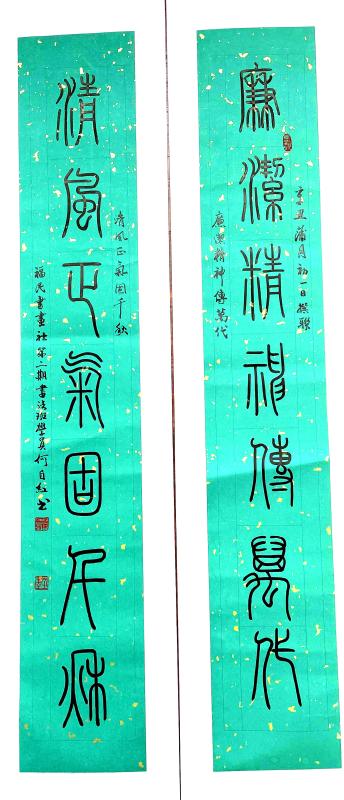 廉潔精神傳萬代
辛丑蒲月初一日撰聯
廉潔精神傳萬代
清風正氣固千秋
清風正氣固千秋
福民書畫社第二期書法班學員何自紅書